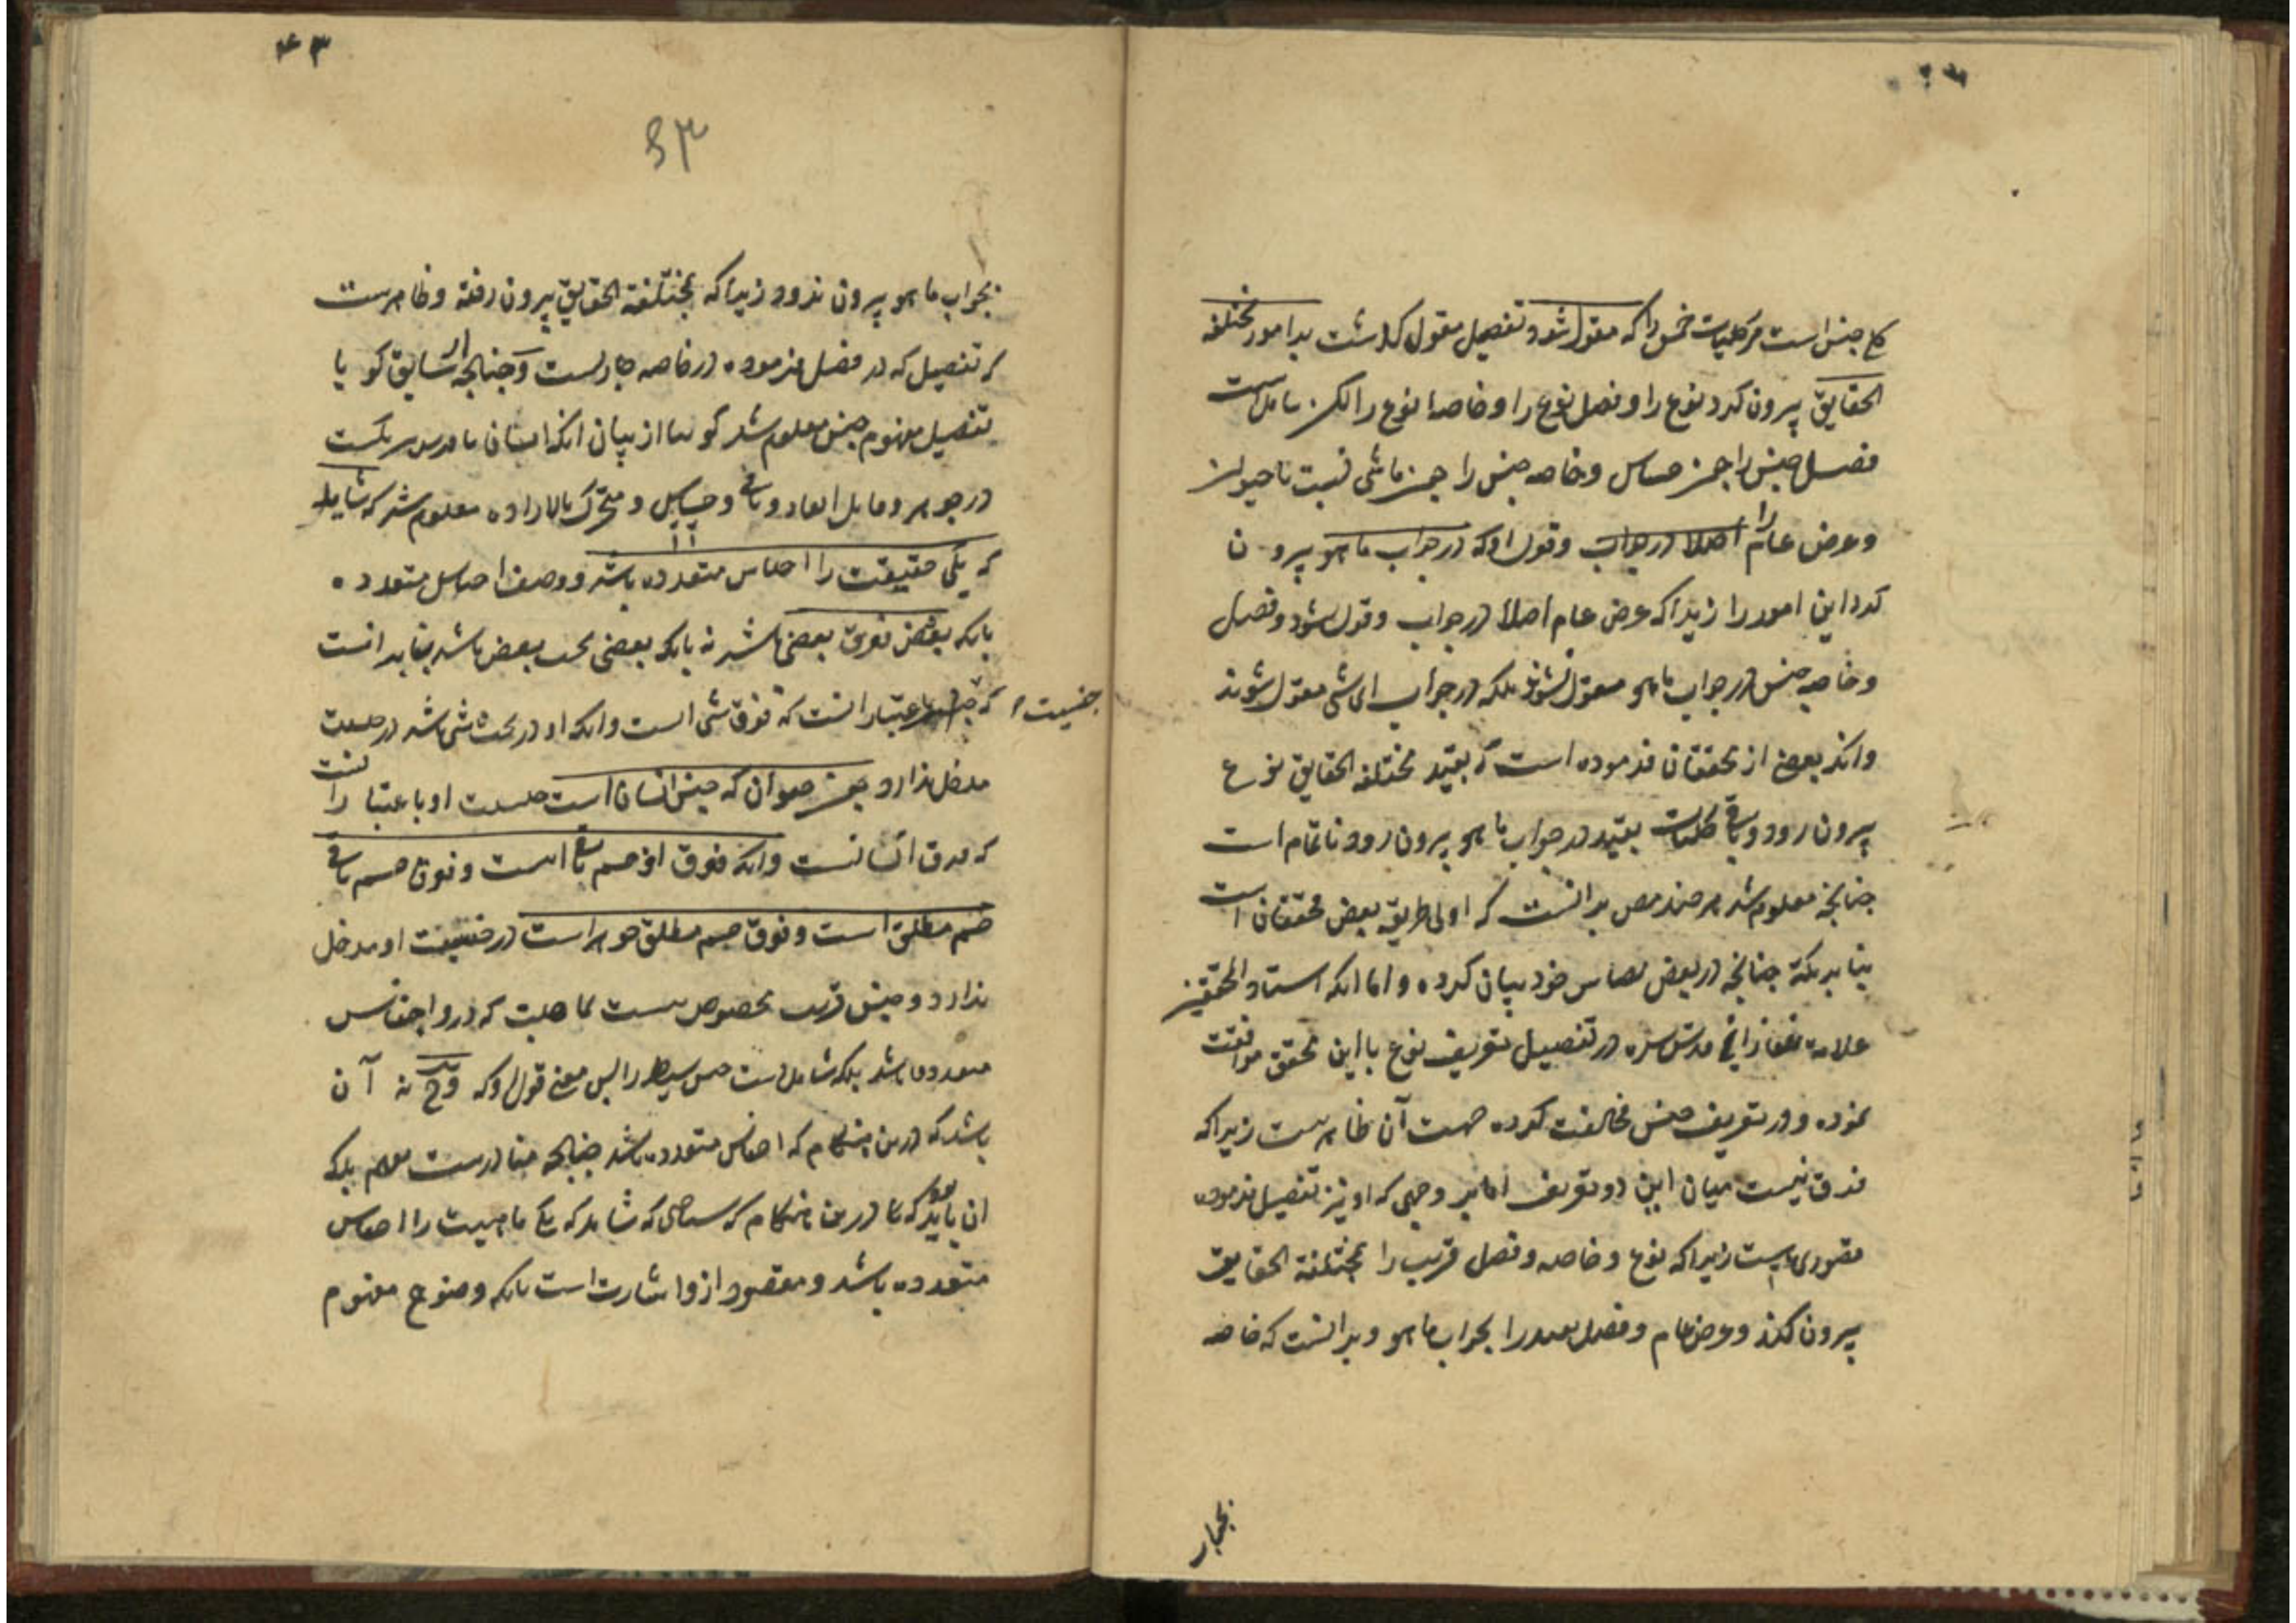 کلی جنس است مر کلیات خمس را که مقول شود و تفصیل مقول گذشت بر امور مختلفة
الحقایق بیرون کرد نوع را و فصل نوع را و خاصهٔ نوع را لکن شامل است
فصل جنس را چون حساس و خاصه جنس را چون ماشی نسبت با حیوان
و عرض عام را اصلا در جواب و قول او که در جواب ما هو بیرون
کرد این امور را زیرا که عرض عام اصلا در جواب مقول نشود و فصل
و خاصه جنس در جواب ما هو مقول نشوند بلکه در جواب ای شی مقول شوند
و انکه بعضی از محققان فرموده است که بقید مختلفة الحقایق نوع
بیرون رود و باقی کلیات بقید در جواب ما هو بیرون رود ناتمام است
چنانچه معلوم شد هر چند مص بر انست که اولی طریق بعض محققان است
بنابر نکته چنانچه در بعض تصانیف خود بیان کرده و اما انکه استاد المحققین
علامه تفتازانی قدس سره در تفصیل تعریف نوع با این محقق موافقت
نموده و در تعریف جنس مخالفت کرده جهت آن ظاهر نیست زیرا که
فرق نیست میان این دو تعریف اما بر وجهی که او نیز تفصیل فرموده
قصوری هست زیرا که نوع و خاصه و فصل قریب را بمختلفة الحقایق
بیرون کند و عرض عام و فصل بعید را بجواب ما هو و بر انست که خاصه
بجواب
۴۳
۴۳
بجواب ما هو بیرون نرود زیرا که بمختلفة الحقایق بیرون رفته و ظاهرست
که تفصیل که در فصل فرموده در خاصه جاریست و چنانچه از سابق کو با
تفصیل مفهوم جنس معلوم شد از بیان انکه انسان با فرس شریکست
در جوهر و قابل ابعاد و نامی و حساس و متحرک بالاراده معلوم شد که شاید
که یک حقیقت را اجناس متعدده باشد و وصف اجناس متعدده
بانکه بعضی فوق بعضی باشد نه بانکه بعضی تحت بعض باشد بنابر انست
که جنسیت باعتبار انست که فوق شی است و انکه او در تحت شی باشد در جنسیت
جنسیت
مدخل ندارد چون حیوان که جنس انسان است جنسیت او باعتبار انست
که فوق انسانست و انکه فوق او جسم نامی است و فوق جسم نامی
جسم مطلق است و فوق جسم مطلق جوهر است در جنسیت او مدخل
ندارد و جنس قریب مخصوص نیست بماهیت که درو اجناس
متعدده باشد بلکه شامل است جنس بسیط را پس معنی قول او که و ح نه آن
باشد که درین هنگام که اجناس متعدده باشد چنانچه متبادرست بفهم بلکه
ان باشد که تا درین هنگام که شناختی که شاید که یک ماهیت را اجناس
متعدده باشد و مقصود ازو اشارت است بانکه وضوح مفهوم